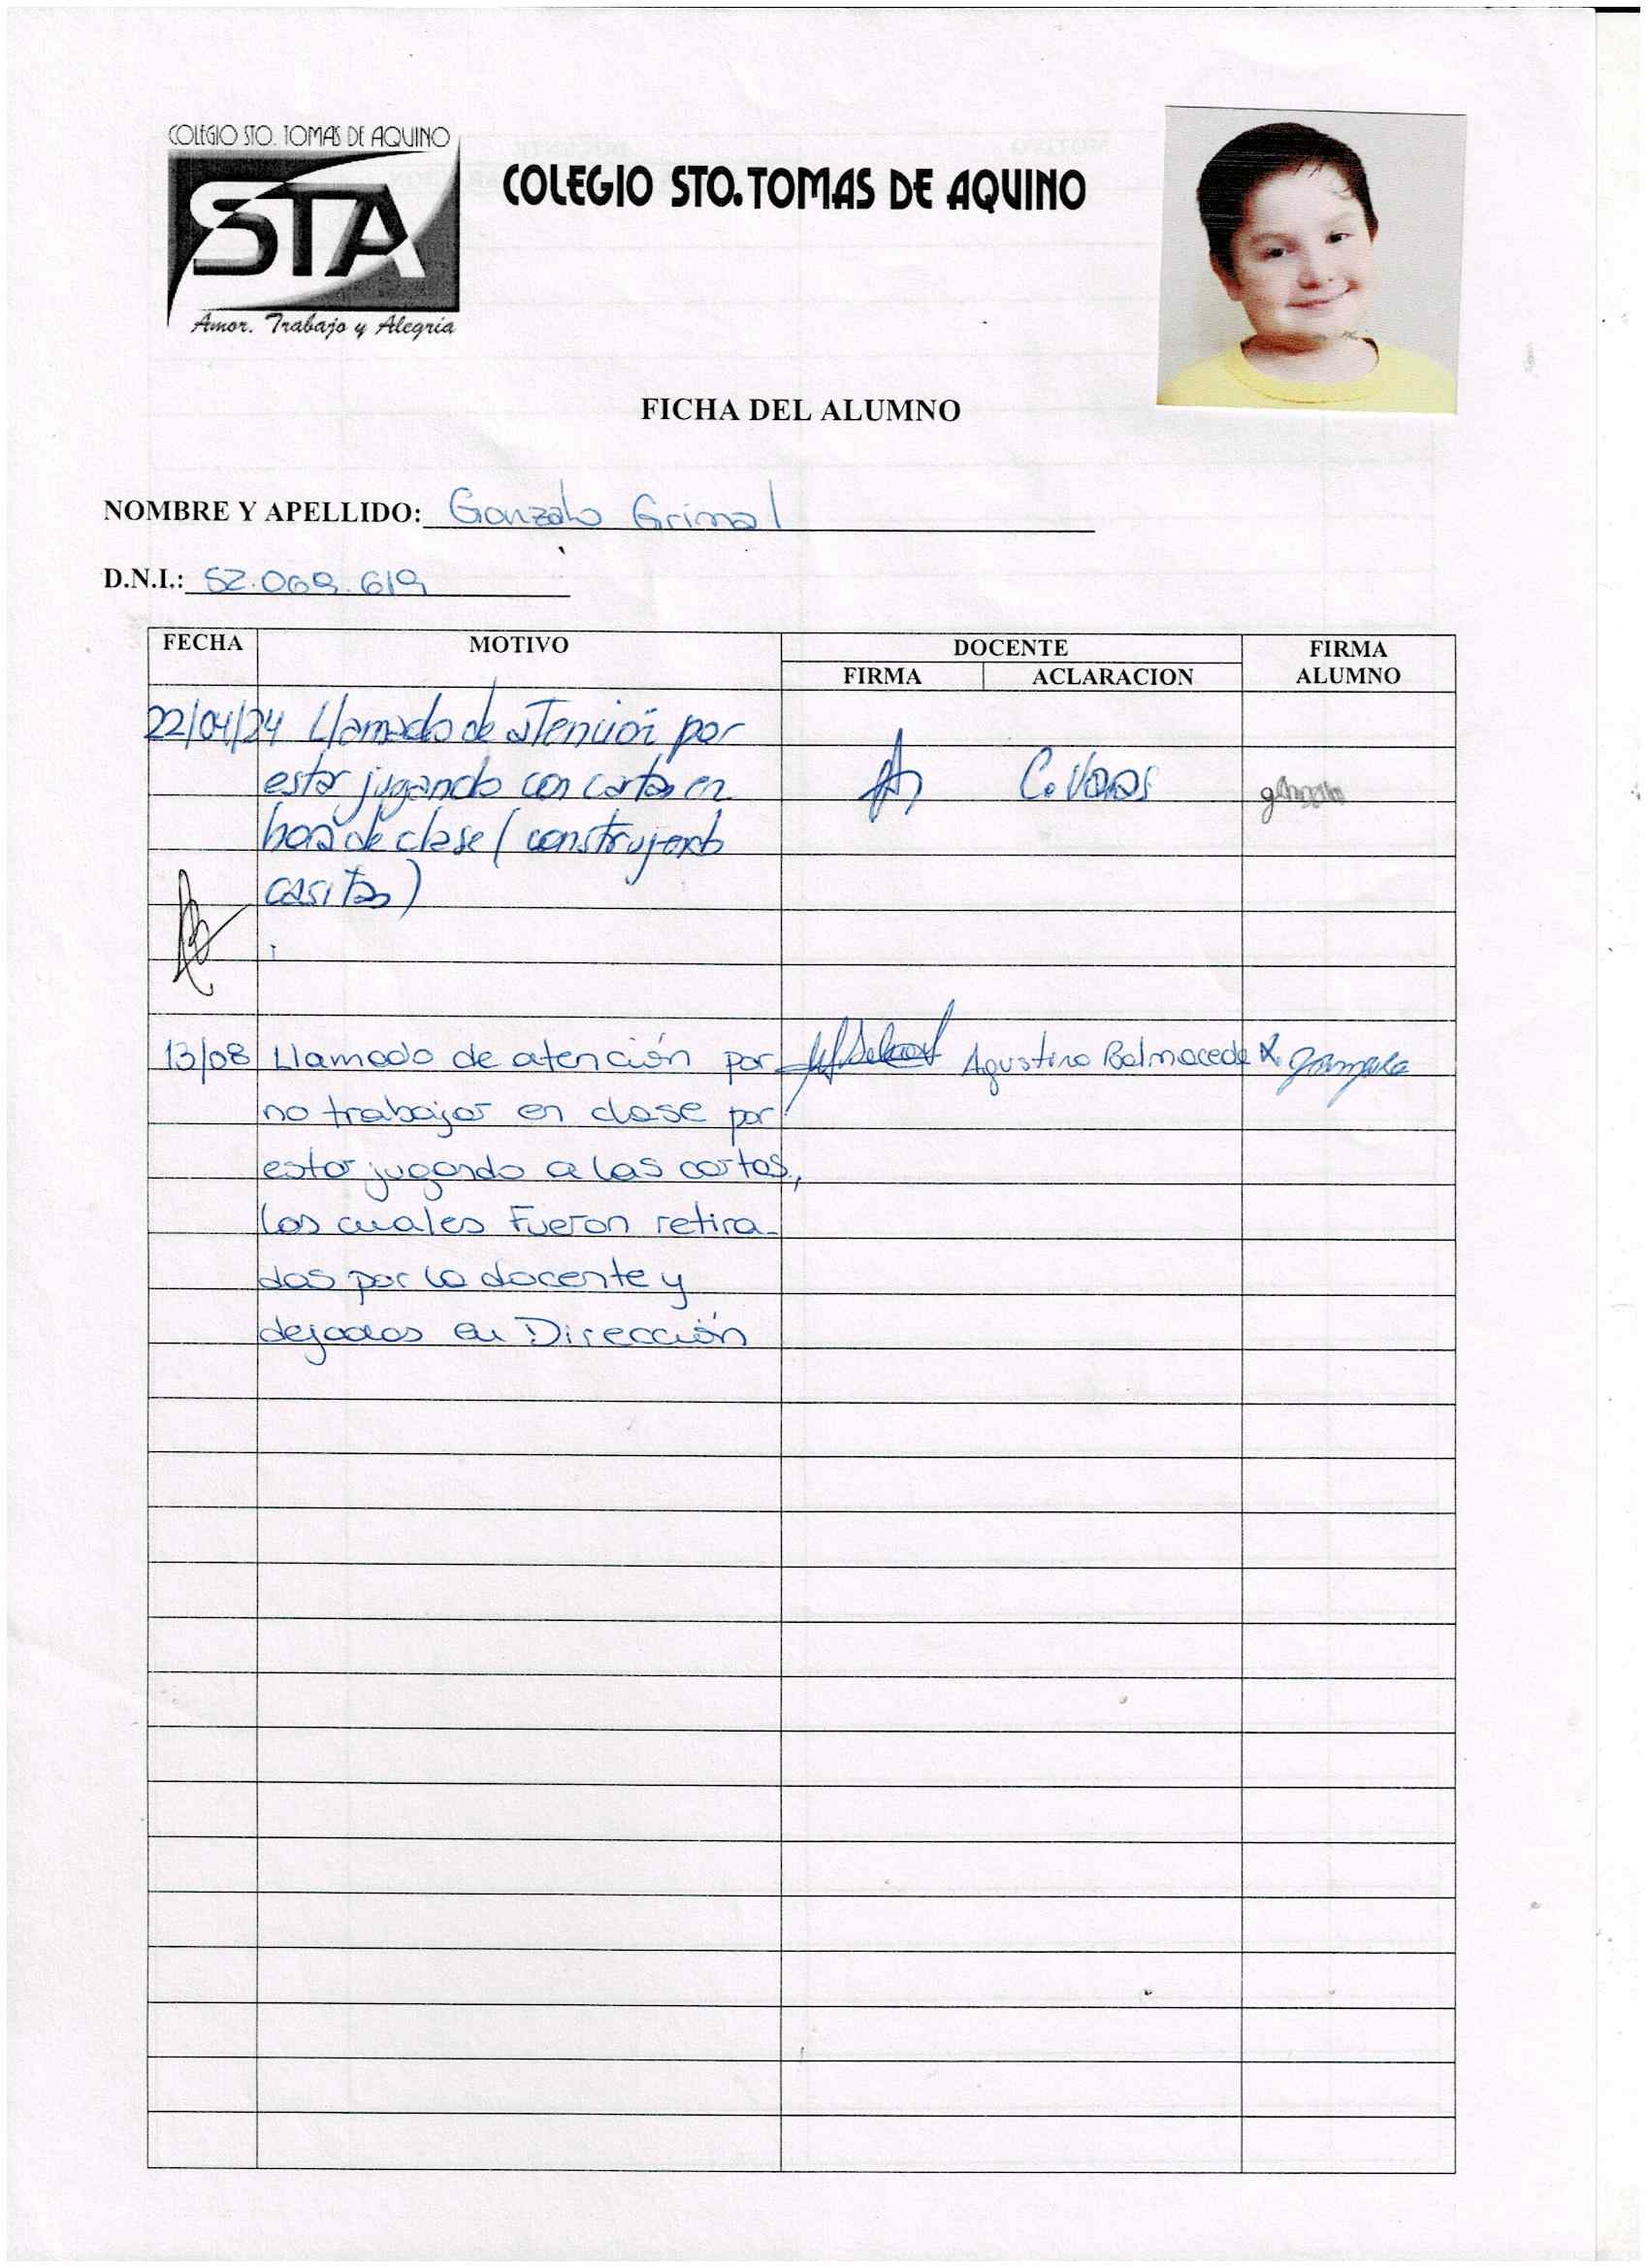 COLEGIO STO. TOMAS DE AQUINO
STA
Amor. Trabajo y Alegría
COLEGIO STO. TOMAS DE AQUINO
FICHA DEL ALUMNO
NOMBRE Y APELLIDO: Gonzalo Grimal
D.N.I.: 52.069.619
FECHA MOTIVO DOCENTE FIRMA ALUMNO
FIRMA ACLARACION
22/04/24 Llamado de atención por
estar jugando con cartas en
hora de clase (construyendo
casitas)
13/08 Llamado de atención por Agustina Balmaceda
no trabajar en clase por
estar jugando a las cartas,
las cuales fueron retira-
das por la docente y
dejadas en Dirección